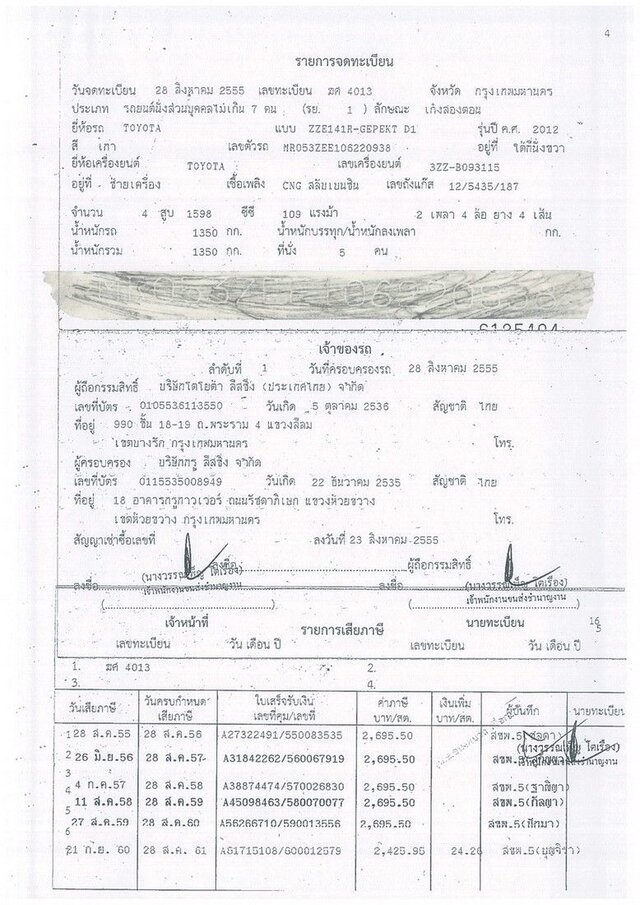 4
รายการจดทะเบียน
วันจดทะเบียน 28 สิงหาคม 2555 เลขทะเบียน ฆศ 4013 จังหวัด กรุงเทพมหานคร
ประเภท รถยนต์นั่งส่วนบุคคลไม่เกิน 7 คน (รย. 1 ) ลักษณะ เก๋งสองตอน
ยี่ห้อรถ TOYOTA แบบ ZZE141R-GEPEKT D1 รุ่นปี ค.ศ. 2012
สี เทา เลขตัวรถ MR053ZEE106220938 อยู่ที่ ใต้ที่นั่งขวา
ยี่ห้อเครื่องยนต์ TOYOTA เลขเครื่องยนต์ 3ZZ-B093115
อยู่ที่ ซ้ายเครื่อง เชื้อเพลิง CNG สลับเบนซิน เลขถังแก๊ส 12/5435/187
จำนวน 4 สูบ 1598 ซีซี 109 แรงม้า 2 เพลา 4 ล้อ ยาง 4 เส้น
น้ำหนักรถ 1350 กก. น้ำหนักบรรทุก/น้ำหนักลงเพลา กก.
น้ำหนักรวม 1350 กก. ที่นั่ง 5 คน
เจ้าของรถ
ลำดับที่ 1 วันที่ครอบครองรถ 28 สิงหาคม 2555
ผู้ถือกรรมสิทธิ์ บริษัทโตโยต้า ลีสซิ่ง (ประเทศไทย) จำกัด
เลขที่บัตร 0105536113550 วันเกิด 5 ตุลาคม 2536 สัญชาติ ไทย
ที่อยู่ 990 ชั้น 18-19 ถ.พระราม 4 แขวงสีลม
เขตบางรัก กรุงเทพมหานคร โทร.
ผู้ครอบครอง บริษัทกรู ลีสซิ่ง จำกัด
เลขที่บัตร 0115535008949 วันเกิด 22 ธันวาคม 2535 สัญชาติ ไทย
ที่อยู่ 18 อาคารทรูทาวเวอร์ ถนนรัชดาภิเษก แขวงห้วยขวาง
เขตห้วยขวาง กรุงเทพมหานคร โทร.
สัญญาเช่าซื้อเลขที่ ลงวันที่ 23 สิงหาคม 2555
ลงชื่อ ผู้ถือกรรมสิทธิ์
ลงชื่อ ลงชื่อ
เจ้าพนักงานขนส่งชำนาญงาน เจ้าพนักงานขนส่งชำนาญงาน
เจ้าหน้าที่ นายทะเบียน
รายการเสียภาษี
เลขทะเบียน วัน เดือน ปี เลขทะเบียน วัน เดือน ปี
1. ฆศ 4013 2.
3. 4.
วันเสียภาษี วันครบกำหนดเสียภาษี ใบเสร็จรับเงิน เลขที่คุม/เลขที่ ค่าภาษี บาท/สต. เงินเพิ่ม บาท/สต. ผู้บันทึก นายทะเบียน
1 28 ส.ค.55 28 ส.ค.56 A27322491/550083535 2,695.50 สขพ.5
2 26 มิ.ย.56 28 ส.ค.57 A31842262/560067919 2,695.50 สขพ.5
3
4 4 ก.ค.57 28 ส.ค.58 A38874474/570026830 2,695.50 สขพ.5(ฐาณิญา)
5 11 ส.ค.58 28 ส.ค.59 A45098463/580070077 2,695.50 สขพ.5(กัลยา)
6 27 ส.ค.59 28 ส.ค.60 A56266710/590013556 2,695.50 สขพ.5(ทักษมา)
21 ก.ย. 60 28 ส.ค. 61 A61715108/600012579 2,425.95 24.26 สขพ.5(บุญจิรา)